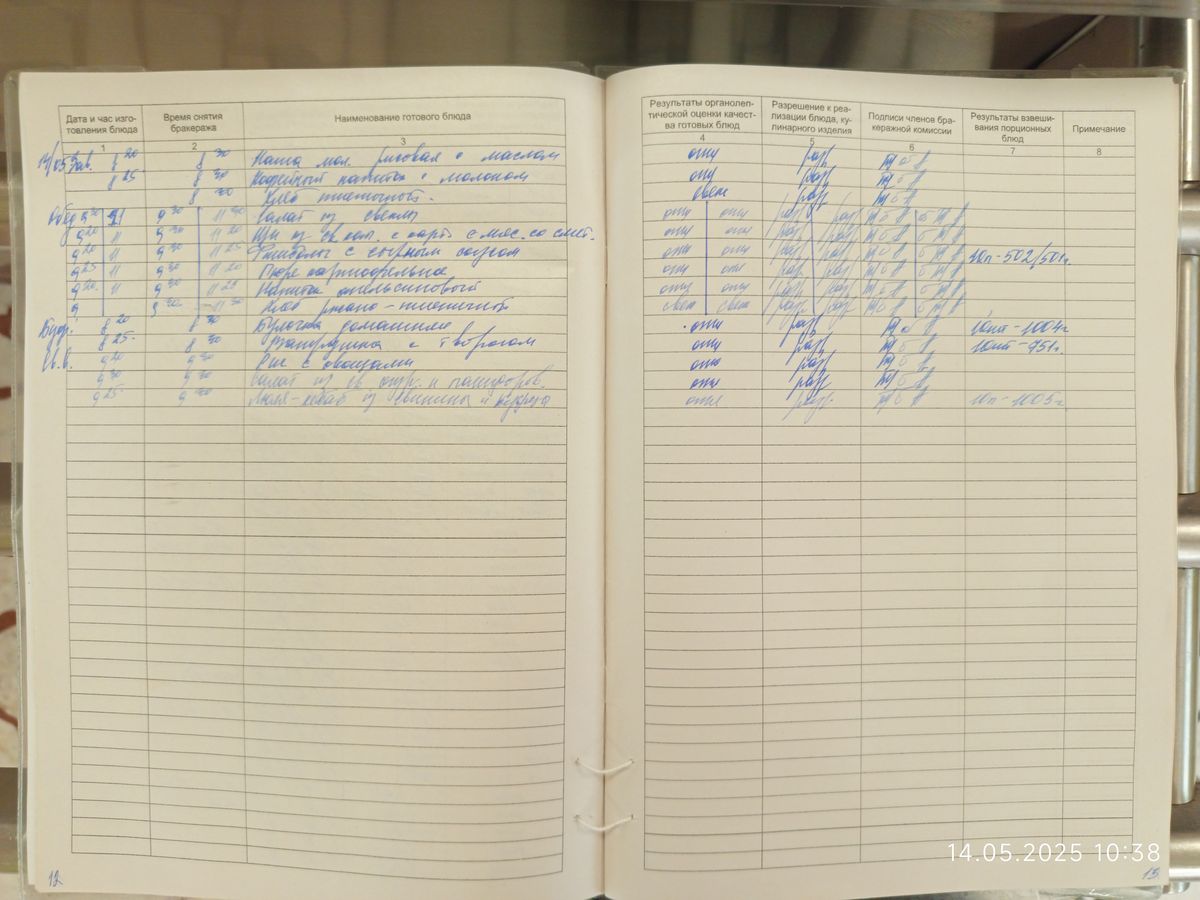 Дата и час изго-
товления блюда
Время снятия
бракеража
Наименование готового блюда
1 2 3
14/05 Зав. 8 20 8 30 Каша мол. рисовая с маслом
8 25 8 30 Кофейный напиток с молоком
8 30 Хлеб пшеничный.
Обед 9 30 11 9 30 11 30 Салат из свеклы
9 20 11 9 30 11 20 Щи из св. кап. с карт. с мяс. со смет.
9 20 11 9 30 11 25 с сырным соусом
9 25 11 9 30 11 20 Пюре картофельное
9 20 11 9 30 11 25 Напиток апельсиновый
9 9 30 11 30 Хлеб ржано-пшеничный
8 20 8 30 Булочка домашняя
8 25 8 30 с творогом
9 20 9 30 Рис с овощами
9 30 9 30 Салат из св. огур. и помидоров.
9 25 9 30 Люля-кебаб из свинины и
12
Результаты органолеп-
тической оценки качест-
ва готовых блюд
Разрешение к реа-
лизации блюда, ку-
линарного изделия
Подписи членов бра-
керажной комиссии
Результаты взвеши-
вания порционных
блюд
Примечание
4 5 6 7 8
отл разр
отл разр
свеж разр
отл отл разр разр
отл отл разр разр
отл отл разр разр 10п-502/501г.
отл отл разр разр
отл отл разр разр
свеж свеж разр разр
отл разр 10шт-1004г
отл разр 10шт-751г.
отл разр
отл разр
отл разр. 10п-1005г.
13
14.05.2025 10:38